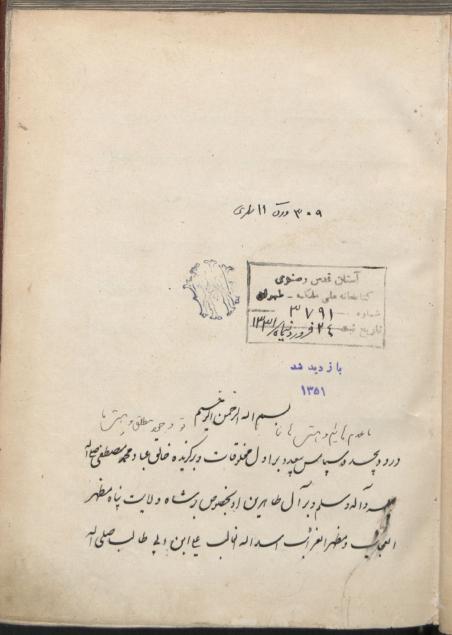 ۳۰۹ ورق ۱۱ سطری
آستان قدس رضوی
کتابخانه ملی ملک - طهران
شماره ۳۷۹۱
تاریخ ثبت ۲۴ فروردین ماه ۱۳۳۱
بازدید شد
۱۳۵۱
بسم الله الرحمن الرحیم
درود بیحد و سپاس بیعد بر اول مخلوقات و برگزیده خالق عباد محمد مصطفی صلی الله
علیه وآله وسلم و بر آل طاهرین او بخصوص بر شاه ولایت پناه مظهر
العجایب و مظهر الغرائب اسد الله الغالب علی ابن ابی طالب صلی الله